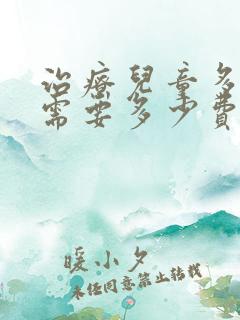 治療兒童多
需要多少費
暖小夕
未經同意禁止轉載